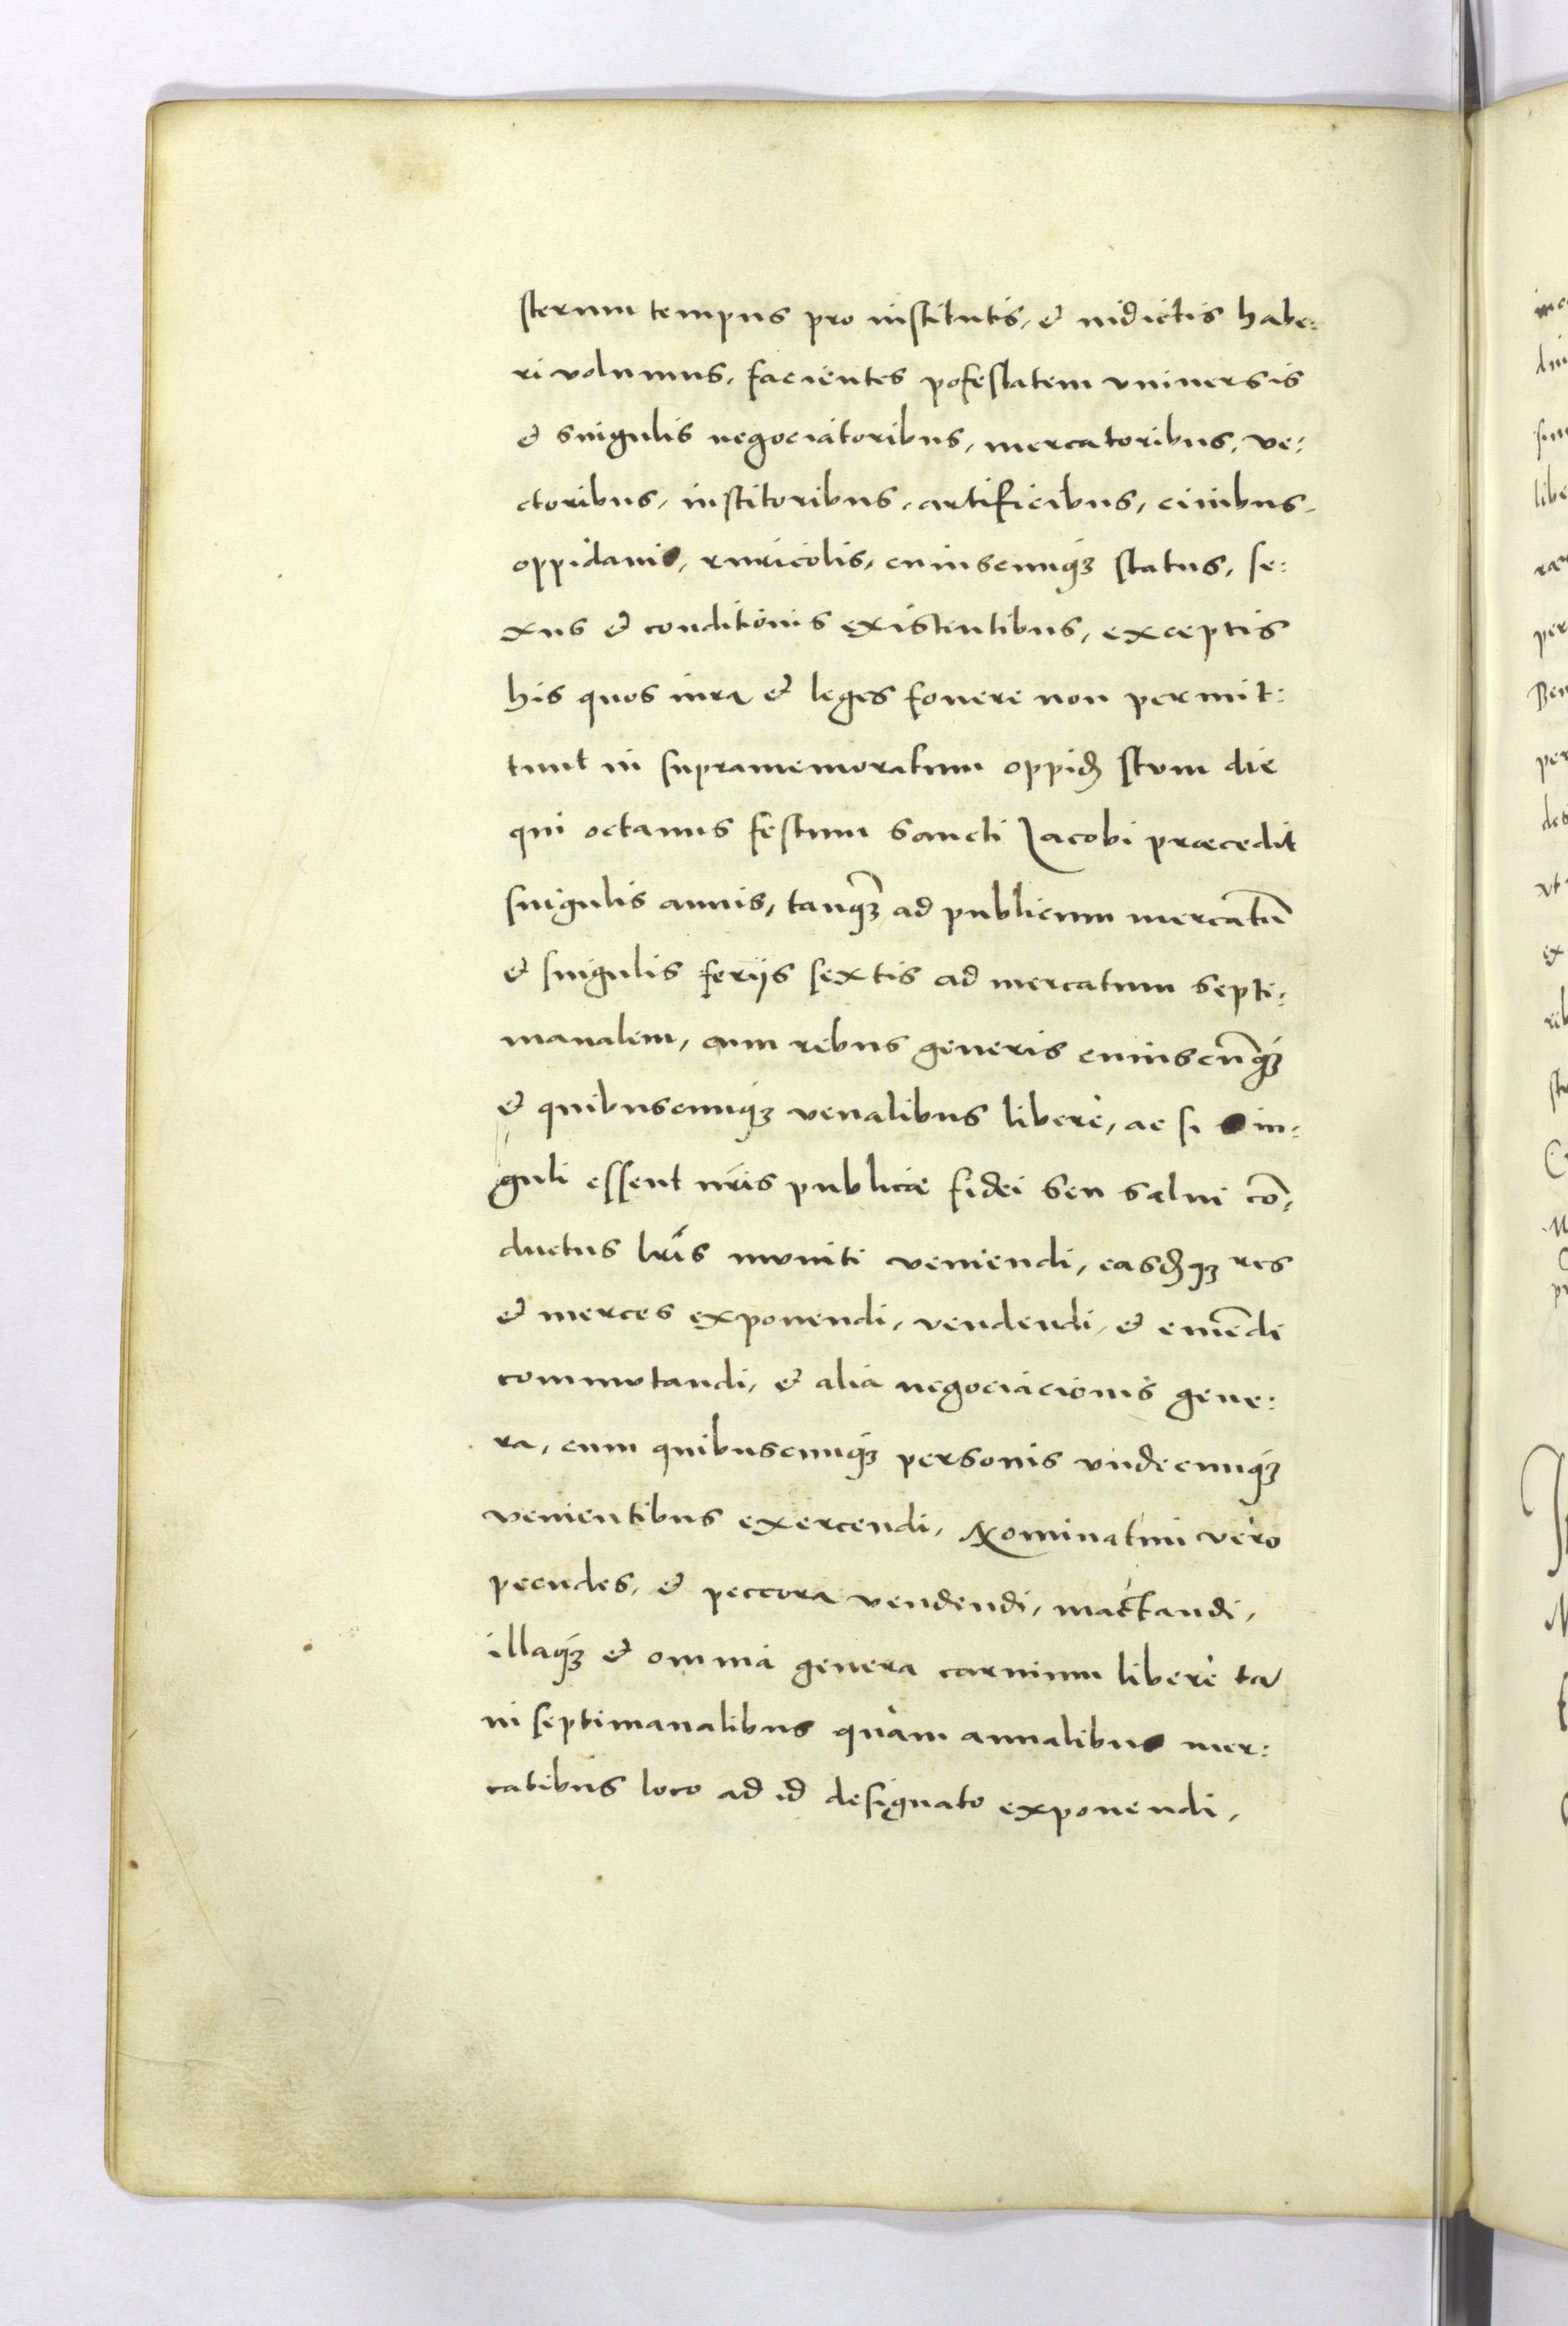 sterum tempus pro institutis, & indictis habe:
ri volumus, facientes potestatem vniuersis
& singulis negociatoribus, mercatoribus, ve:
ctoribus, institoribus, artificibus, ciuibus,
oppidanis, ruricolis, cuiuscunqꝫ status, se:
xus & conditionis existentibus, exceptis
his quos iura & leges fouere non permit:
tunt in supramemoratum oppid̄ stum die
qui octauus festum Sancti Iacobi præcedit
singulis annis, tanqꝫ̄ ad publicum mercatū
& singulis ferijs sextis ad mercatum septi:
manalem, cum rebus generis cuiuscūqꝫ
& quibuscunqꝫ venalibus liberè, ac si sin:
guli essent nr̄is publicæ fidei seu salui cō:
ductus lr̄is muniti veniendi, easd̄qꝫ res
& merces exponendi, vendendi, & emēdi
commutandi, & alia negociacionis gene:
ra, cum quibuscunqꝫ personis vndecunqꝫ
venientibus exercendi, Nominatim vero
pecudes, & peccora vendendi, mactandi,
illaqꝫ & omnia genera carnium liberè tā
in septimanalibus quàm annalibus mer:
catibus loco ad id designato exponendi,